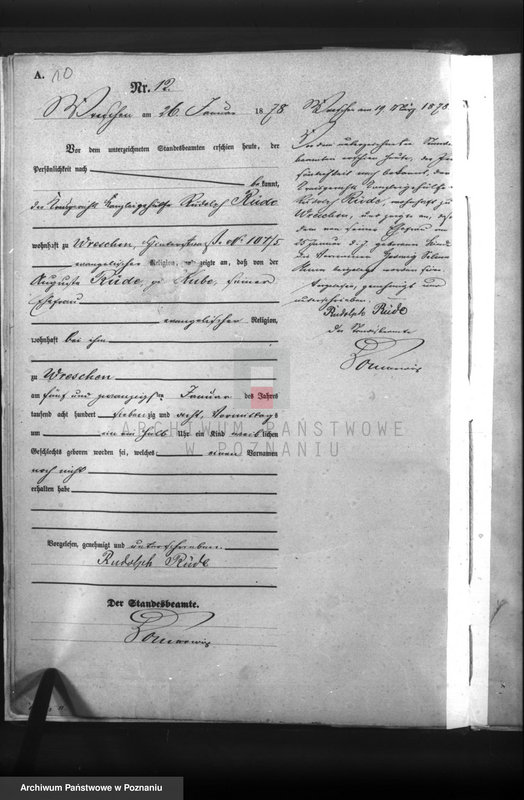 A. 10
Nr. 12.
Wreschen am 26. Januar 1878
Vor dem unterzeichneten Standesbeamten erschien heute, der
Persönlichkeit nach
bekannt,
der Königliche Kanzleigehülfe Rudolph Rüde
wohnhaft zu Wreschen, № 107/5
evangelischer Religion, und zeigte an, daß von der
Auguste Rüde, geb. Kube, seiner
Ehefrau
evangelischer Religion,
wohnhaft bei ihm
zu Wreschen
am fünf und zwanzigsten Januar des Jahres
tausend acht hundert siebenzig und acht, Vormittags
um ein ein halb Uhr ein Kind weiblichen
Geschlechts geboren worden sei, welches einen Vornamen
noch nicht
erhalten habe
Vorgelesen, genehmigt und unterschrieben.
Rudolph Rüde
Der Standesbeamte.
Wreschen am 19. 1878
Vor dem unterzeichneten Standes-
beamten erschien heute, der Per-
sönlichkeit nach bekannt, der
Königliche Kanzleigehülfe
Rudolph Rüde, wohnhaft zu
Wreschen, und zeigte an, daß
dem von seiner Ehefrau am
25 Januar d. J. geborenen Kinde
die Vornamen Hedwig
beigelegt worden sind.
Vorgelesen, genehmigt und
unterschrieben.
Rudolph Rüde
Der Standesbeamte
ARCHIWUM PAŃSTWOWE
W POZNANIU
Archiwum Państwowe w Poznaniu